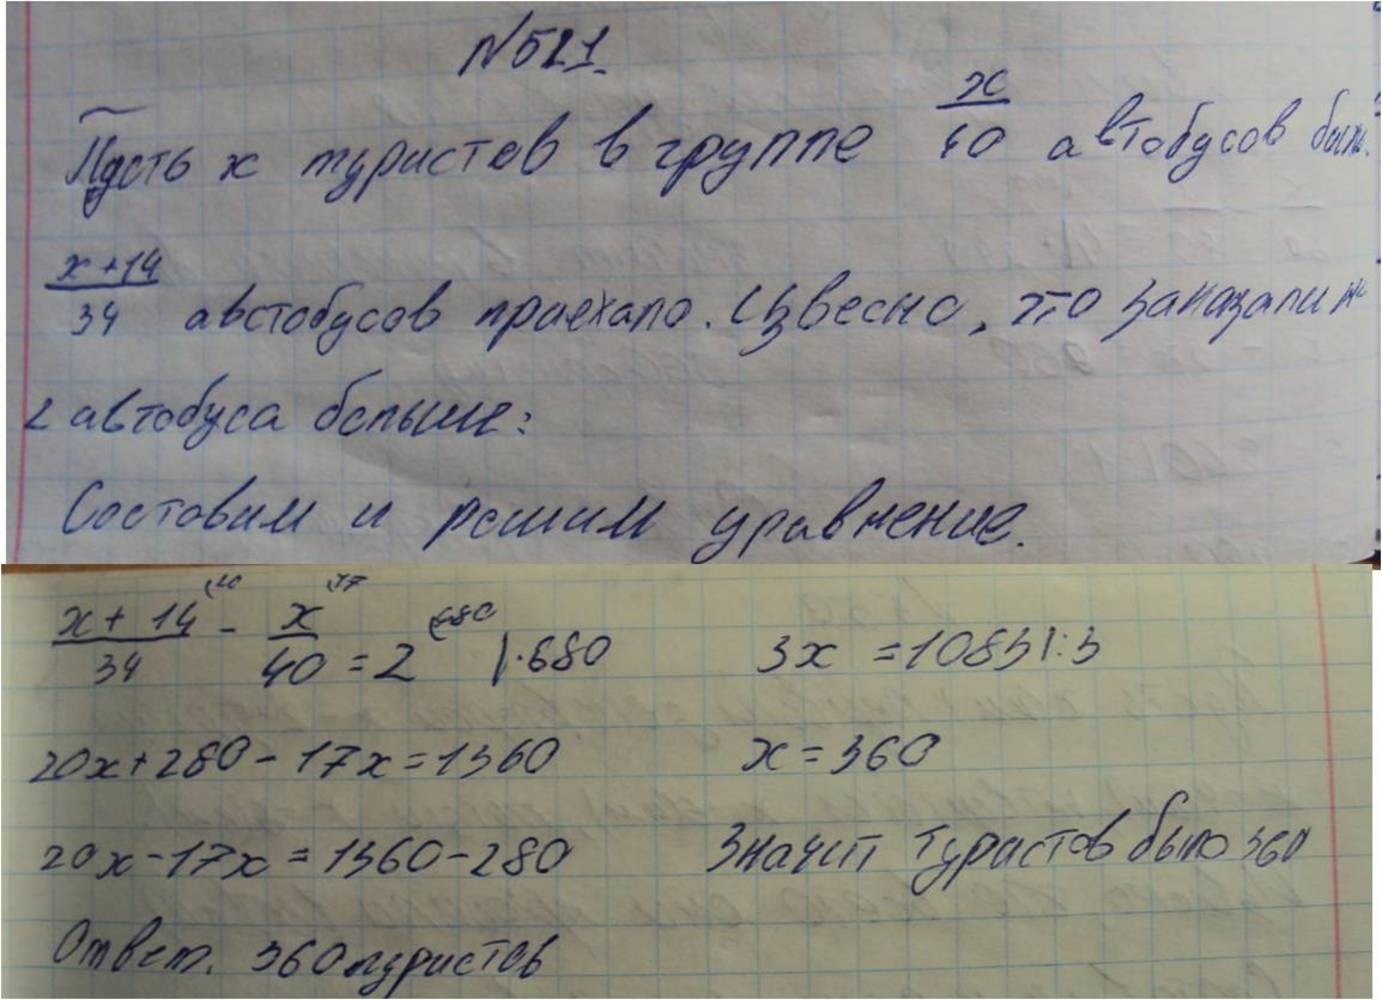 №521.
Пусть x туристов в группе x/40 автобусов было.
x+14/34 автобусов приехало. Извесно, что заказали на
2 автобуса больше:
Составим и решим уравнение.
x+14/34 (20 - x/40 (17 = 2 (680 |·680
20x+280-17x=1360
20x-17x=1360-280
3x =1083|:3
x=360
Значит туристов было 360
Ответ. 360 туристов